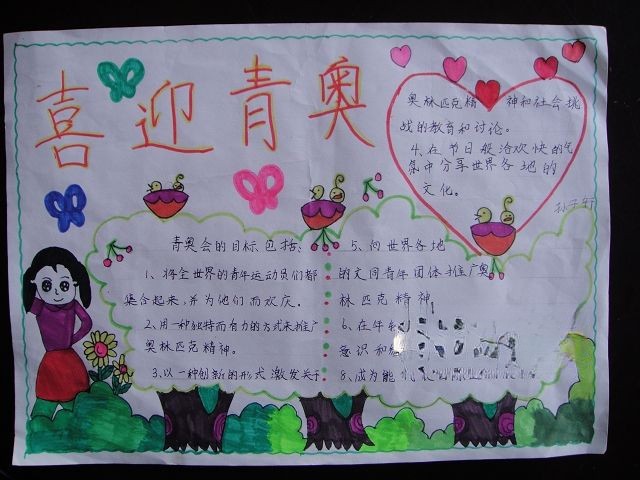 喜迎青奥
青奥会的目标包括:
1、将全世界的青年运动员们都
集合起来,并为他们而欢庆。
2、用一种独特而有力的方式来推广
奥林匹克精神。
3、以一种创新的形式激发关于
奥林匹克精神和社会挑
战的教育和讨论。
4、在节日般洽欢快的气
氛中分享世界各地的
文化。
5、向世界各地
的文同青年团体推广奥
林匹克精神
6、在年
意识和
8、成为能